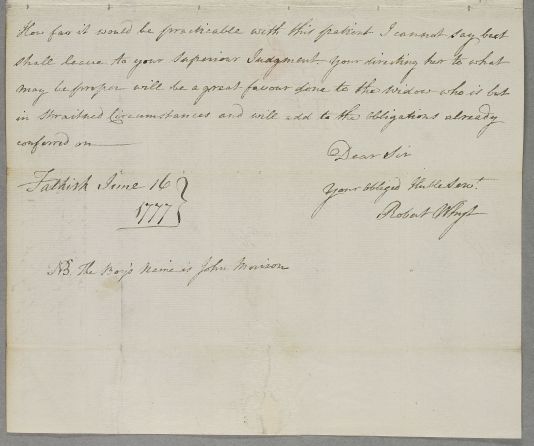 How far it would be practicable with this patient I cannot say but
shall leave to your Superiour Judgment. Your directing her to what
may be proper will be a great favour done to the Widow who is but
in Straitned Circumstances and will add to the obligations already
conferred on
Dear Sir
Your obliged Hule Servt.
Robert Whyt
Falkirk June 16
1777
NB. The Boys Name is John Morison